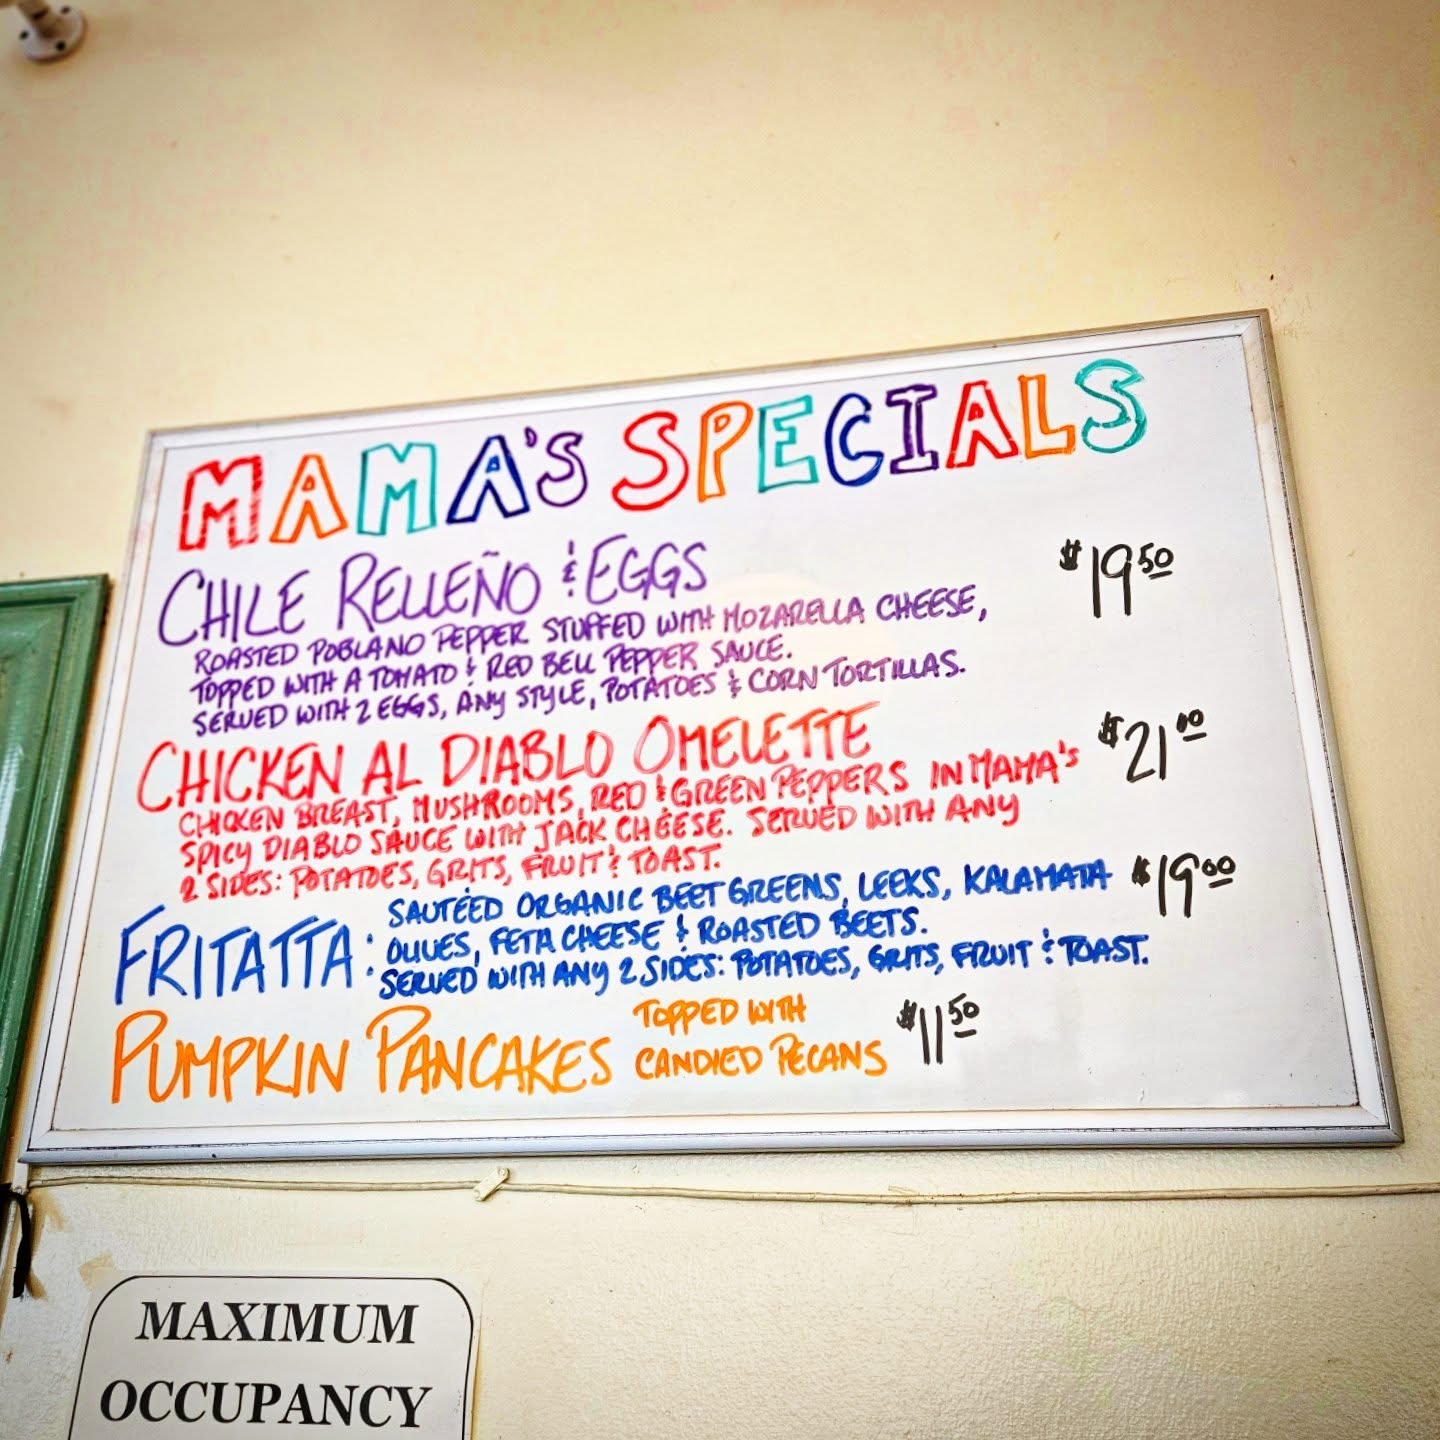 MAMA'S SPECIALS
CHILE RELLEÑO & EGGS $19.50
ROASTED POBLANO PEPPER STUFFED WITH MOZARELLA CHEESE,
TOPPED WITH A TOMATO & RED BELL PEPPER SAUCE.
SERVED WITH 2 EGGS, ANY STYLE, POTATOES & CORN TORTILLAS.
CHICKEN AL DIABLO OMELETTE $21.00
CHICKEN BREAST, MUSHROOMS, RED & GREEN PEPPERS IN MAMA'S
SPICY DIABLO SAUCE WITH JACK CHEESE. SERVED WITH ANY
2 SIDES: POTATOES, GRITS, FRUIT & TOAST.
FRITATTA: SAUTÉED ORGANIC BEET GREENS, LEEKS, KALAMATA $19.00
OLIVES, FETA CHEESE & ROASTED BEETS.
SERVED WITH ANY 2 SIDES: POTATOES, GRITS, FRUIT & TOAST.
PUMPKIN PANCAKES TOPPED WITH $11.50
CANDIED PECANS
MAXIMUM
OCCUPANCY